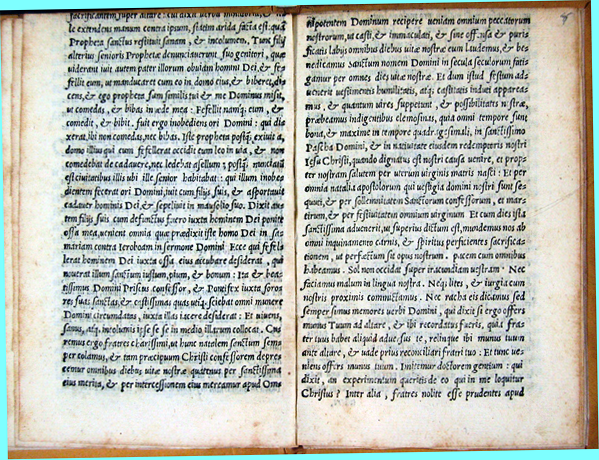 sacrificantem super altare: cui dixit verba
le extendens manum contra ipsum, statim arida facta est: quā
Propheta sanctus restituit sanam, & incolumen. Tunc filij
alterius senioris Prophetæ denunciaverunt suo genitori, quæ
viderant: ivit autem pater illorum obviam homini Dei, & fe
fellit eum, ut manducaret cum eo in domo eius, & biberet, di
cens, & ego propheta sum similis tui & me Dominus misit,
ut comedas, & bibas in æde mea: Fefellit namq; eum, &
comedit, & bibit. fuit ergo inobediens ori Domini: qui dix
erat, ibi non comedas, nec bibas. Iste propheta postq̃ exivit a
domo illius qui eum fefellerat occidit eum leo in via, & non
comedebat de cadavere, nec ledebat asellum; postq̃ nunciatū
est civitaribus illis ubi ille senior habitabat: qui illum inobe
dientem fecerat ori Domini, ivit cum filijs suis, & asportavit
cadaver hominis Dei, & sepelivit in mausolio suo. Dixit au
tem filijs suis cum defunctus fuero iuxta hominem Dei ponite
ossa mea, venient omnia quæ prædixit iste homo Dei in sa
mariam contra Ieroboam in sermone Domini Ecce qui fefel
lerat hominem Dei iuxta ossa eius accubare desiderat, qui
noverat illum sanctum iustum, pium, & bonum: Ita & bea
tissimus Domini Priscus confessor, & Pontifex iuxta soro
res suas sanctas, & castissimas quas utiq; sciebat omni munere
Domini circumdatas, iuxta illas iacere desiderat: Et vivens,
sanus, atq; incolumis ipse se se in medio illarum collocat. Cu
remus ergo fratres charissimi, ut hunc natalem sanctum sem
per colamus, & tam præcipuum Christi confessorem depre
cemur omnibus diebus vitæ nostræ quatenus per sanctissima
eius merita, & per intercessionem eius mereamur apud Omni
potentem Dominum recipere veniam omnium peccatorum
nostrorum, ut casti, & immaculati, & sine offensa & puris
ficatis labijs omnibus diebus vitæ nostræ eum laudemus, & be=
nedicamus sanctum nomen Domini in secula seculorum fati
gamur per omnes dies vitæ nostræ. Et dum istud festum ads
venerit vestimentis humilitatis, atq; castitatis induti appareas
mus, & quantum vires suppetunt, & possibilitates nostræ,
præbeamus indigentibus elemosinas, quia omni tempore sunt
bona, & maxime in tempore quadragesimali, in sanctissimo
Pascha Domini, & in nativitate eiusdem redemptoris nostri
Iesu Christi, quando dignatus est nostri causa venire, et prop=
ter nostram salutem per uterum virginis matris nasci: Et per
omnia natalia apostolorum qui vestigia domini nostri sunt ses
quuti, & per sollemnitatem Sanctorum confessorum, et mar=
tirum, & per festivitatem omnium virginum Et cum dies ista
sanctissima advenerit, ut superius dictum est, mundemus nos ab
omni inquinamento carnis, & spiritus perficientes sacrificas
tionem, ut perfectum sit opus nostrum. pacem cum omnibus
habeamus. Sol non occidat super iracundiam vestram: Nec
faciamus malum in lingua nostra. Neq; lites, & iurgia cum
nostris proximis commutamus. Nec racha eis dicamus sed
semper simus memores verbi Domini, qui dixit si ergo offers
munus Tuum ad altare, & ibi recordatus fueris, quia fra
ter tuus habet aliquid adversus te, relinque ibi munus tuum
ante altare, & vade prius reconciliari fratri tuo: Et tunc ve=
niens offers munus tuum. Imitemur doctorem gentium: qui
dixit, an experimentum queritis de eo qui in me loquitur
Christus? Inter alia, fratres nolite esse prudentes apud